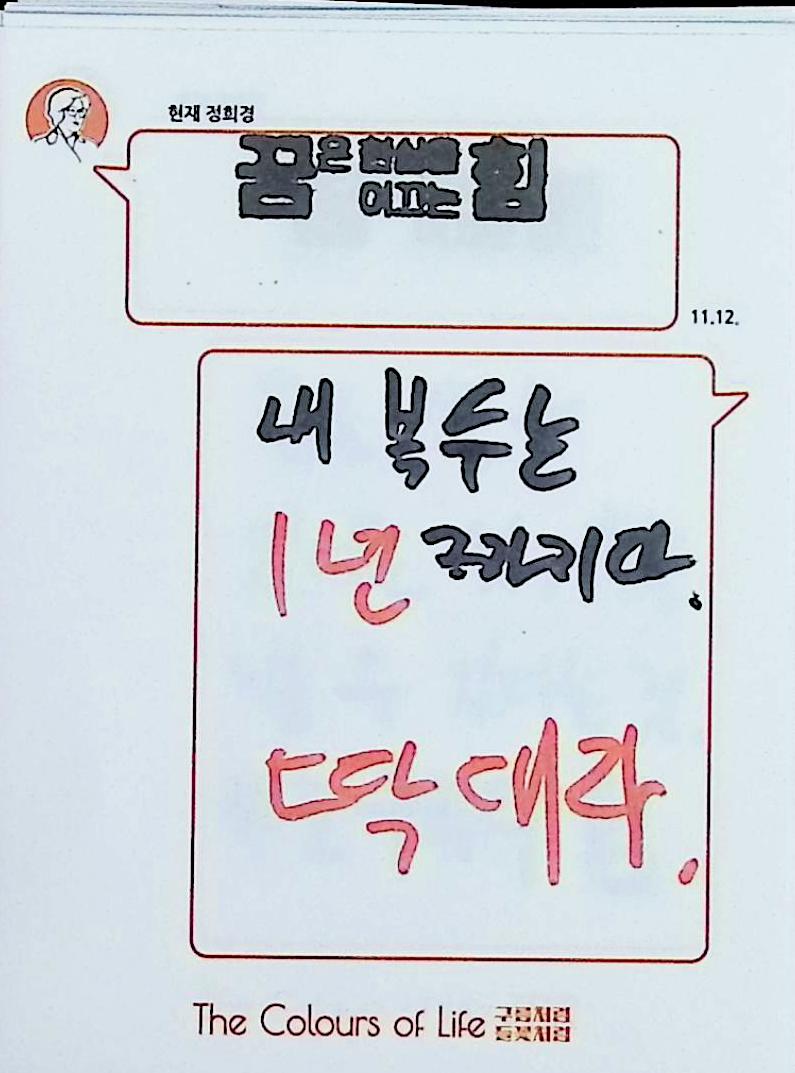 현재 정희경
꿈은 현실을 이끄는 힘
11.12.
내 복수는
1년 주까지다.
딱 대라.
The Colours of Life 구름처럼 들꽃처럼